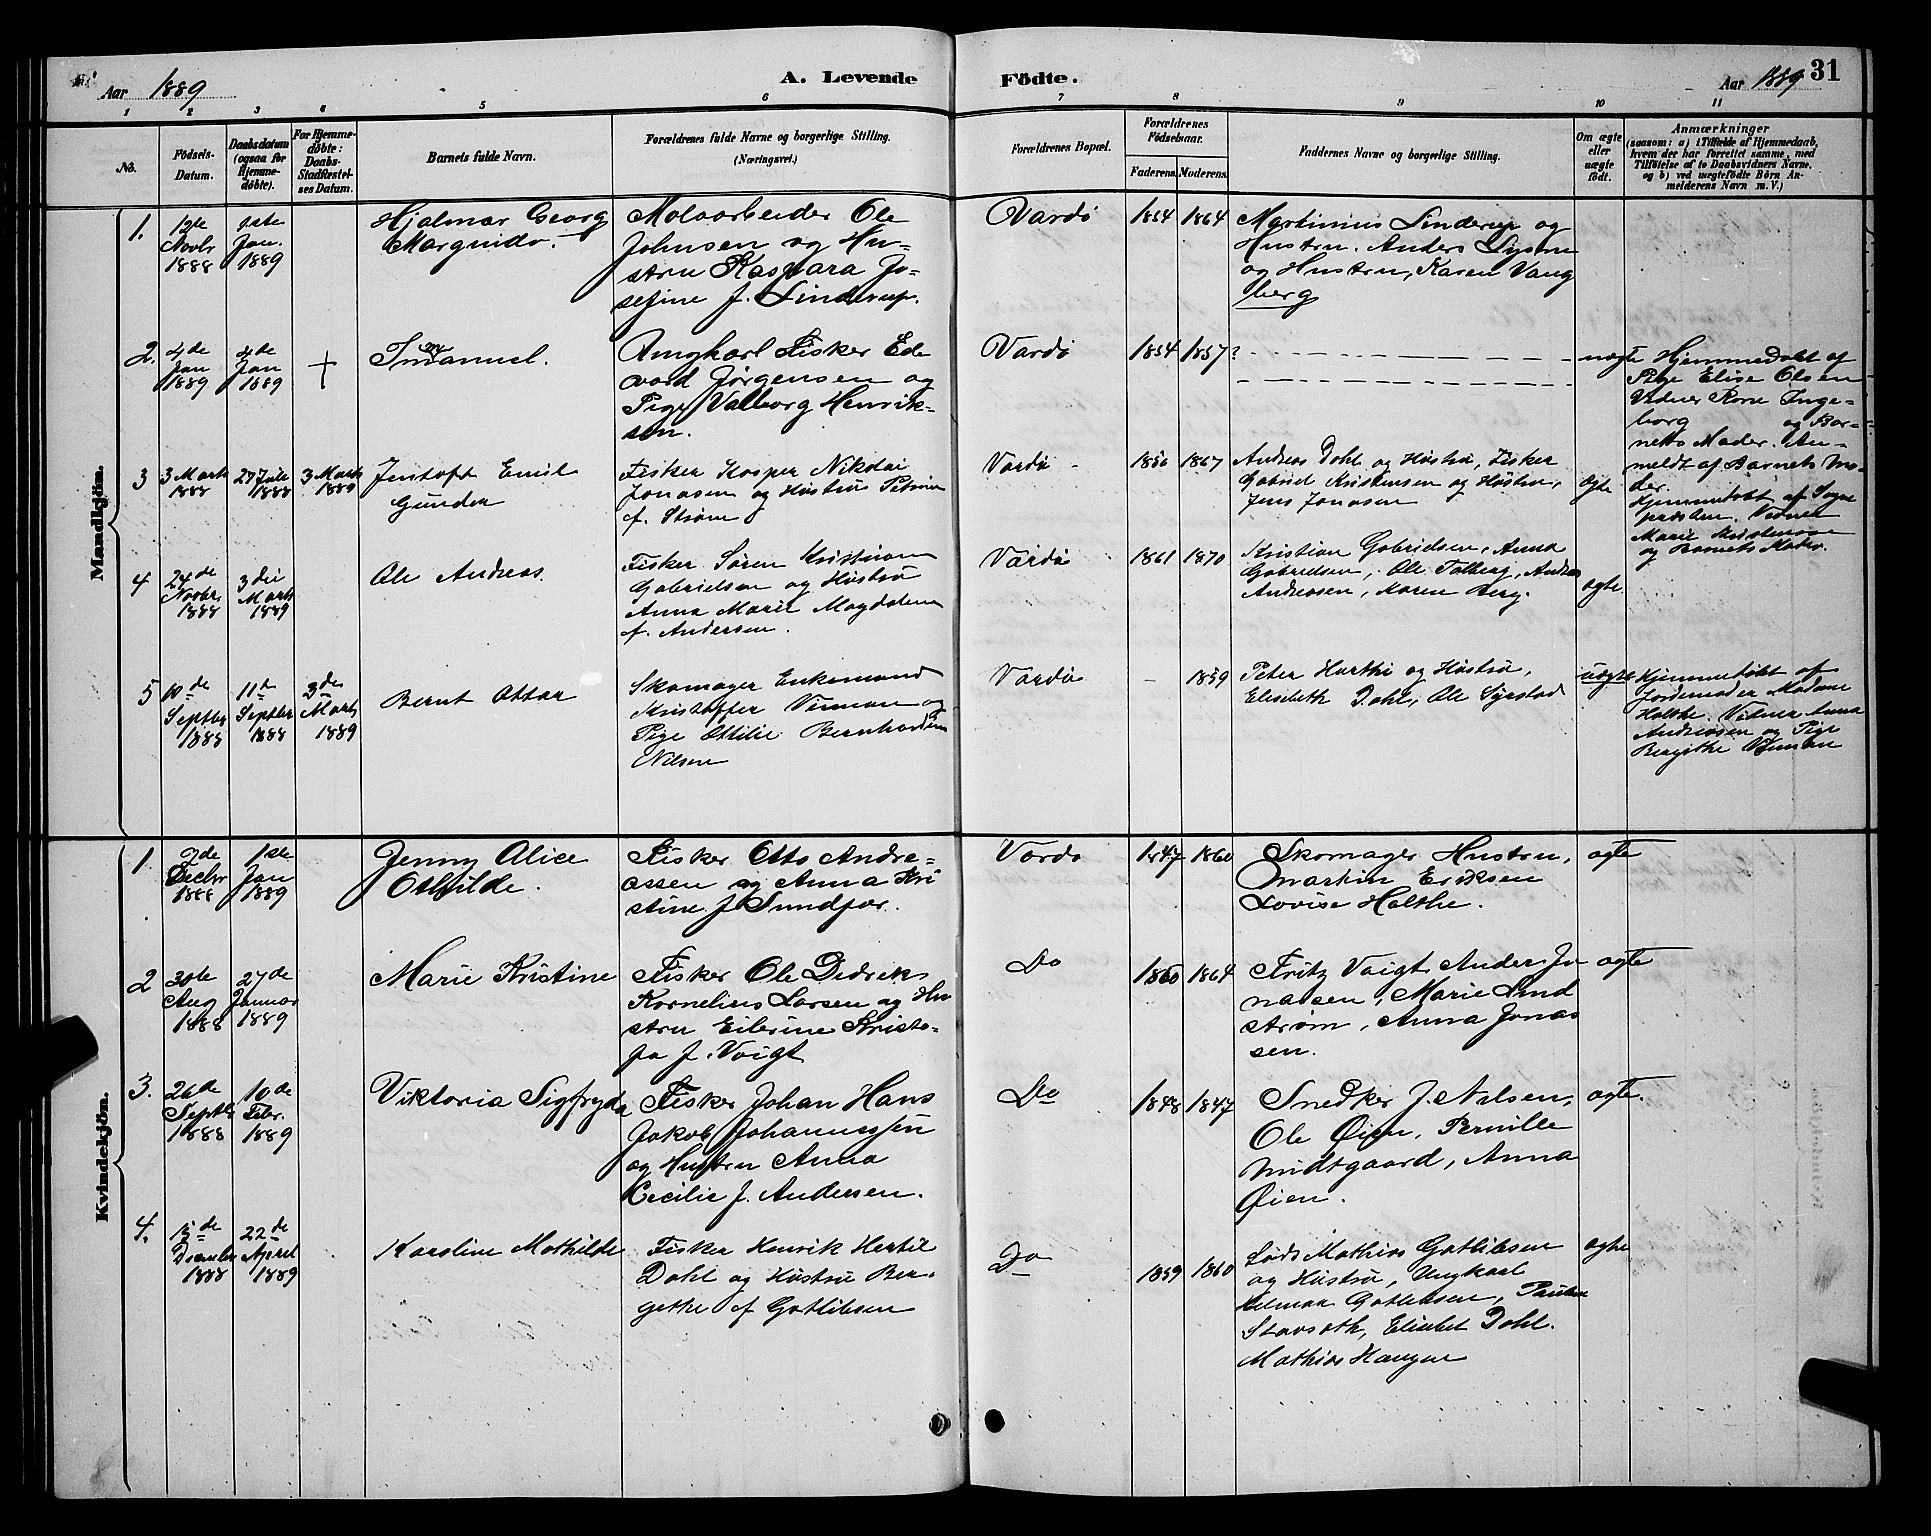 Aar 1889
A. Levende
Födte.
Aar 1889
31
1 2 3 4 5 6 7 8 9 10 11
No.
Födsels-
Datum.
Daabsdatum
(ogsaa for
Hjemme-
döbte).
For Hjemme-
döbte:
Daabs-
Stadfæstel-
ses Datum.
Barnets fulde Navn.
Forældrenes fulde Navne og borgerlige Stilling.
(Næringsvei.)
Forældrenes Bopæl.
Forældrenes
Födselsaar.
Faderens.
Moderens.
Faddernes Navne og borgerlige Stilling.
Om ægte
eller
uægte
födt.
Anmærkninger
(saasom: a) i Tilfælde af Hjemmedaab,
hvem der har forrettet samme, med
Tilföielse af to Daabsvidners Navne.
og b) ved uægtefödte Börn An-
melderens Navn m. V.)
Mandkjön.
1.
12te
Novbr
1888
1ste
Jan.
1889
Hjalmar Georg
Marguido.
Moloarbeider Ole
Johnsen og Hu-
stru Kaspara Jo-
sefine f. Linderup.
Vardö
1864
1864
Martinius Linderup og
Hustru. Anders Lysne
og Hustru, Karen Vang
berg
2.
4de
Jan
1889
4de
Jan
1889
Immanuel.
Ungkarl Fisker Ed
vard Jørgensen og
Pige Valborg Henrik-
sen.
Vardö
1854
1857?
uægte
Hjemmedöbt af
Pige Elise Olsen
Vidner Kone Inge-
borg og Bar-
nets Moder. An-
meldt af Barnets Mo-
der.
3
3 Marts
1888
27 Juli
1888
3 Marts
1889
Jentoft Emil
Gunder
Fisker Kasper Nikolai
Jonasen og Hüstrü Petrine
f. Strøm
Vardö
1856
1867
Andreas Dahl og Hüstrü, Fisker
Gabriel Kristensen og Hüstrü,
Jens Jonasen
ægte
Hjemmedöbt af Sogne
præsten. Vidner
Marie Kristensen
og Barnets Fader.
4
24de
Novbr.
1888
3die
Marts
1889
Ole Andreas.
Fisker Søren Kristian
Gabrielsen og Hüstrü
Anna Marie Magdalena
f. Andersen.
Vardö
1861
1870
Kristian Gabrielsen, Anna
Gabrielsen, Ole Talberg, Andreas
Andreassen, Karen Berg.
ægte
5
10de
Septbr
1888
11te
Septbr
1888
3de
Marts
1889
Bernt Ottar
Skomager Enkemand
Kristoffer Veiman og
Pige Ottilie Bernhardine
Nilsen
Vardö
1859
Peter Harthi og Hüstrü,
Elisabeth Dahl, Ole Syrstad
uægte
Hjemmedöbt af
Jordemoder Madame
Holthe. Vidner Anna
Andreasen og Pige
Bergithe Veiman
Kvindekjön.
1
2de
Decbr
1888
1ste
Jan
1889
Jenny Alice
Othilde.
Fisker Otto Andre-
assen og Anna Kri
stine f. Sundfær.
Vardö
1847
1860
Skomager Hustru,
Martin Eriksen
Lovise Holthe.
ægte
2
30te
Aug
1888
27de
Januar
1889
Marie Kristine
Fisker Ole Didrik
Kornelius Larsen og Hu
stru Eilerine Kristo-
fa f. Voigt
Do
1860
1864
Fritz Voigt, Anders Jo
nassen, Marie Lind
strøm, Anna Jonas
sen.
ægte
3.
26de
Septbr
1888
10de
Febr.
1889
Viktoria Sigfryda
Fisker Johan Hans
Jakob Johannessen
og Hustru Anna
Cecilie f. Andersen.
Do
1848
1847
Snedker J. Nilsen,
Ole Øien, Pernille
Midtgaard, Anna
Øien.
ægte.
4.
15de
Decembr
1888
22de
April
1889
Karoline Mathilde
Fisker Henrik Hertil
Dahl og Hüstrü Ber-
gethe f. Gotlibsen
Do
1859
1860
Lods Mathias Gotlibsen
og Hüstrü, Ungkarl
Hilmar Gotlibsen, Pauline
Stavseth, Elisabet Dahl.
Mathias Haugen
ægte